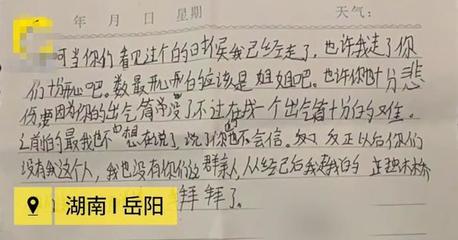 年 月 日 星期 天气：
可当你们看见这个的时候我已经走了，也许我走了你
们十分开心吧。数最开心的应该是姐姐吧。也许你十分悲
伤因为你的出气筒没了不过在找一个出气筒十分的艰难。
之前的最我也不想在说了，说了你也不会信。反正以后你们
没有我这个人，我也没有你们这群亲人，从经已后我走我的独木桥
拜拜了。
湖南 | 岳阳